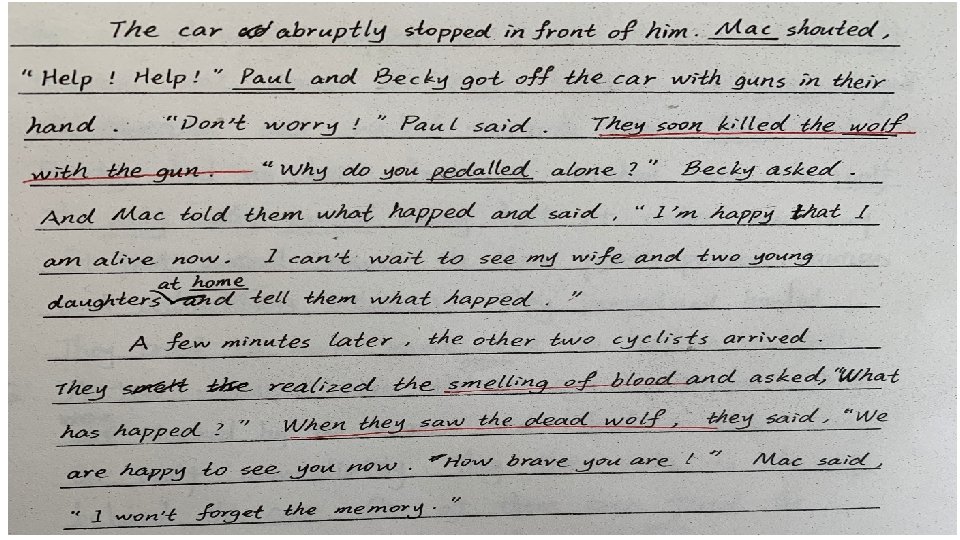 The car abruptly stopped in front of him. Mac shouted,
"Help ! Help ! " Paul and Becky got off the car with guns in their
hand . "Don't worry ! " Paul said . They soon killed the wolf
with the gun . "Why do you pedalled alone ? " Becky asked .
And Mac told them what happed and said , "I'm happy that I
am alive now . I can't wait to see my wife and two young
at home
daughters and tell them what happed . "
A few minutes later , the other two cyclists arrived .
They smelt the realized the smelling of blood and asked, "What
has happed ? " When they saw the dead wolf , they said , "We
are happy to see you now . "How brave you are ! " Mac said ,
" I won't forget the memory . "